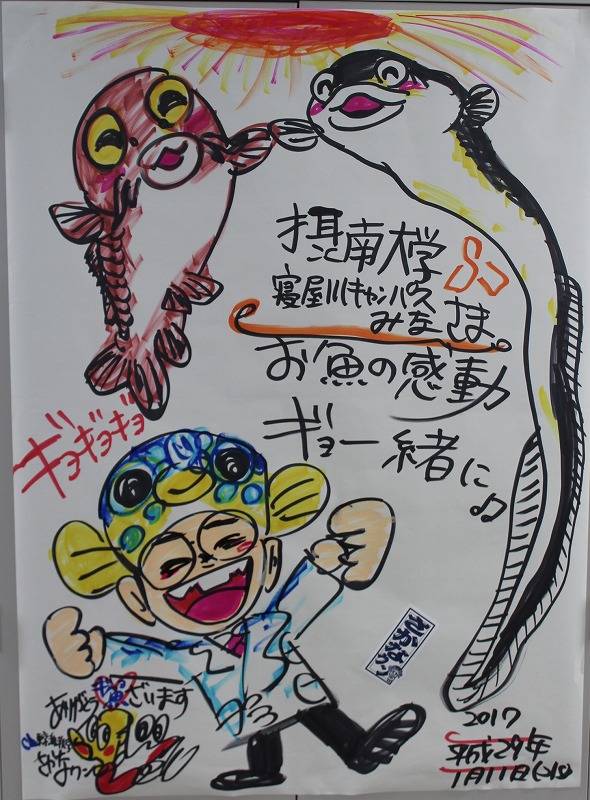 摂南大学
寝屋川キャンパスの
みなさま。
お魚の感動
ギョー緒に♪
ギョギョギョ
さかなクン
ありがとうギョざいます
さかなクン
2017
平成29年
1月11日(水)